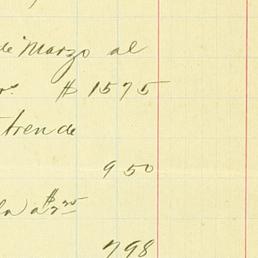 de Marzo al
rs. $ 1575
tren de
9 50
la a $7.75
798